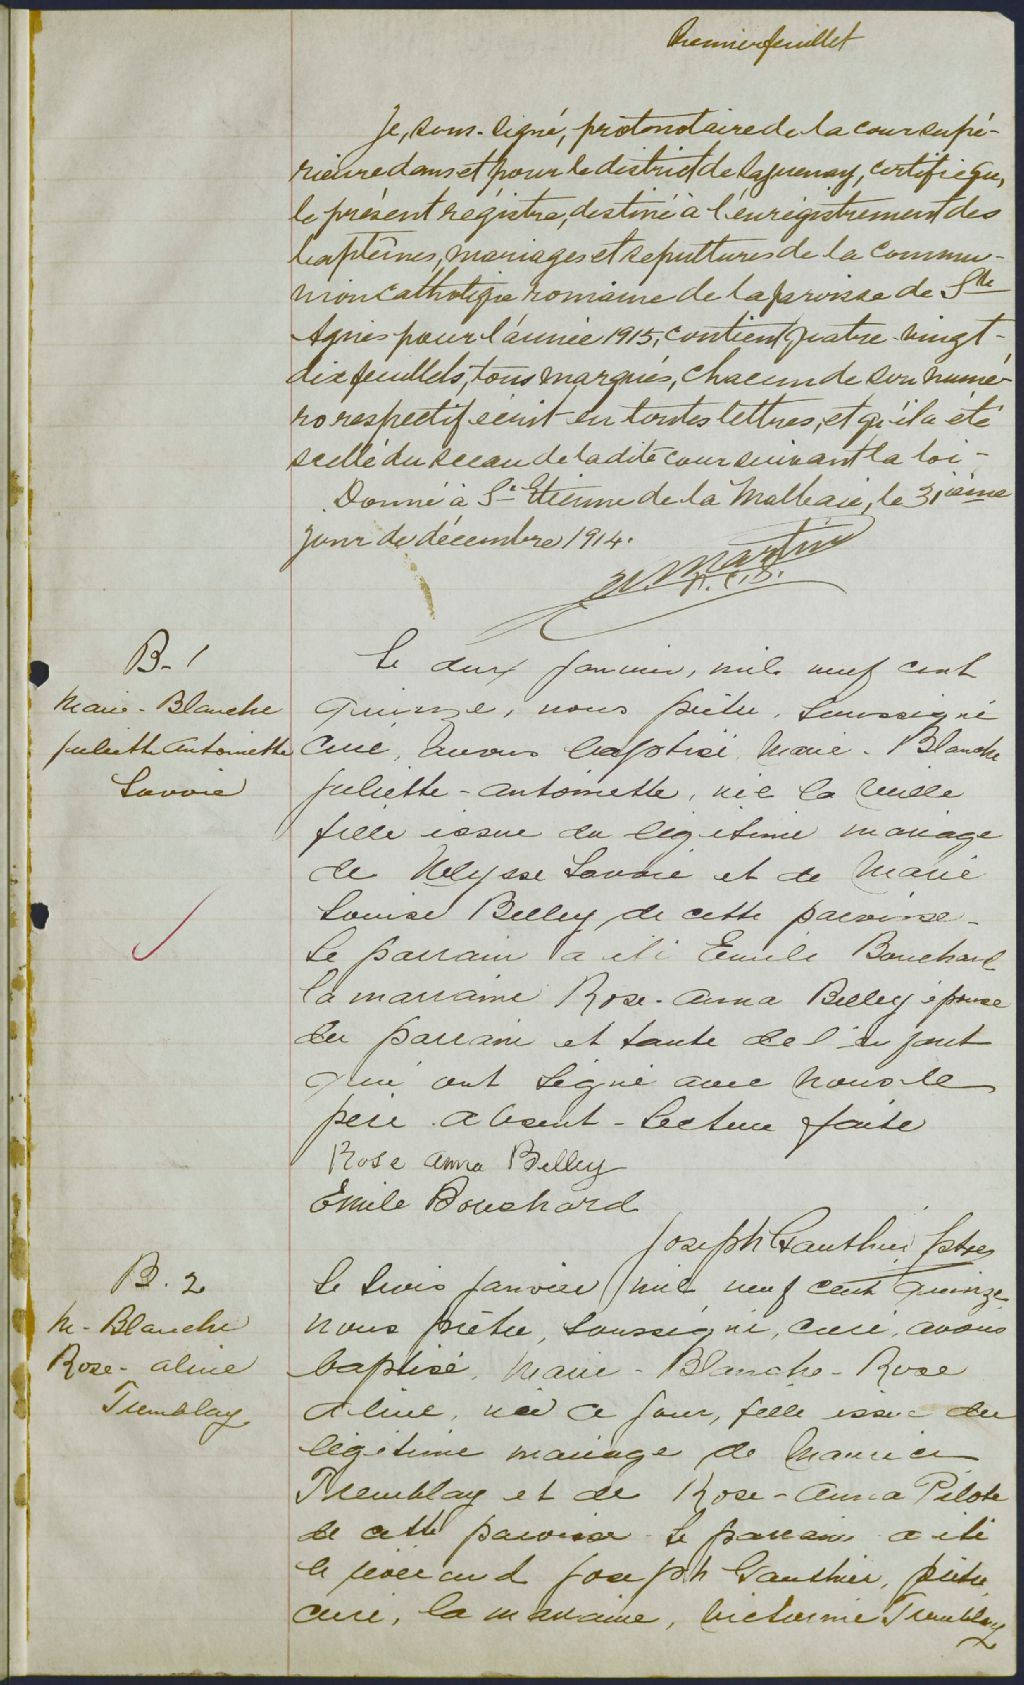 Premier feuillet
Je, sous-signé, protonotaire de la cour supé-
rieure dans et pour le district de Saguenay, certifie que,
le présent régistre, destiné à l'enrégistrement des
baptêmes, mariages et sepultures de la commu-
nion catholique romaine de la paroisse de Ste
Agnès pour l'année 1915, contient quatre-vingt-
dix feuillets, tous marqués, chacun de son numé-
ro respectif écrit en toutes lettres, et qu'il a été
scellé du sceau de la dite cour suivant la loi-
Donné à St Etienne de la Malbaie, le 31ième
jour de décembre 1914.
Martin
P.C.S.
B-1
Marie-Blanche
Juliette Antoinette
Savoie
Le deux janvier, mil neuf cent
quinze, nous prêtre, soussigné
curé, avons baptisé Marie-Blanche
Juliette-Antoinette, née la veille
fille issue du légitime mariage
de Ulysse Savoie et de Marie
Louise Belley de cette paroisse-
Le parrain a été Emile Bouchard
la marraine Rose-Anna Belley épouse
du parrain et tante de l'enfant
qui ont signé avec nous-le
père absent-Lecture faite
Rose Anna Belley
Emile Bouchard
Joseph Gauthier Ptre
B. 2
M-Blanche
Rose-Aline
Tremblay
Le trois janvier mil neuf cent quinze
nous prêtre, soussigné, curé, avons
baptisé, Marie-Blanche-Rose
Aline, née ce jour, fille issue du
légitime mariage de Maurice
Tremblay et de Rose-Anna Pilote
de cette paroisse-Le parrain a été
le révérend Joseph Gauthier, prêtre
curé, la marraine, Victorine Tremblay